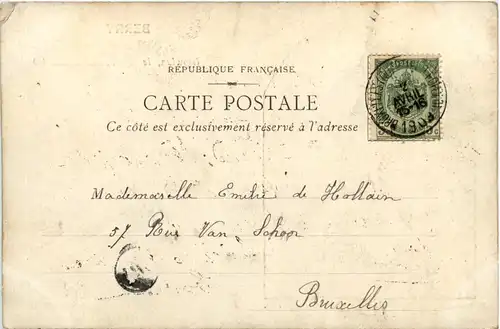 RÉPUBLIQUE FRANÇAISE
CARTE POSTALE
Ce côté est exclusivement réservé à l'adresse
AVRIL
Mademoiselle Emilie de Hollain
57 Rue Van Schoor
Bruxelles